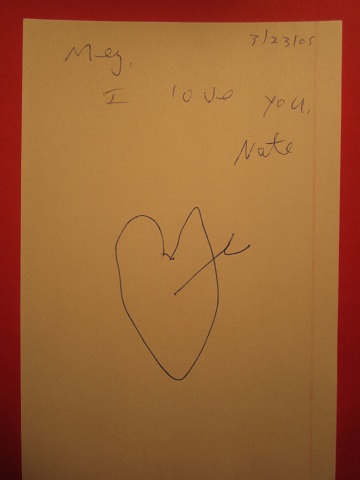 3/23/05
Meg,
I love you,
Nate